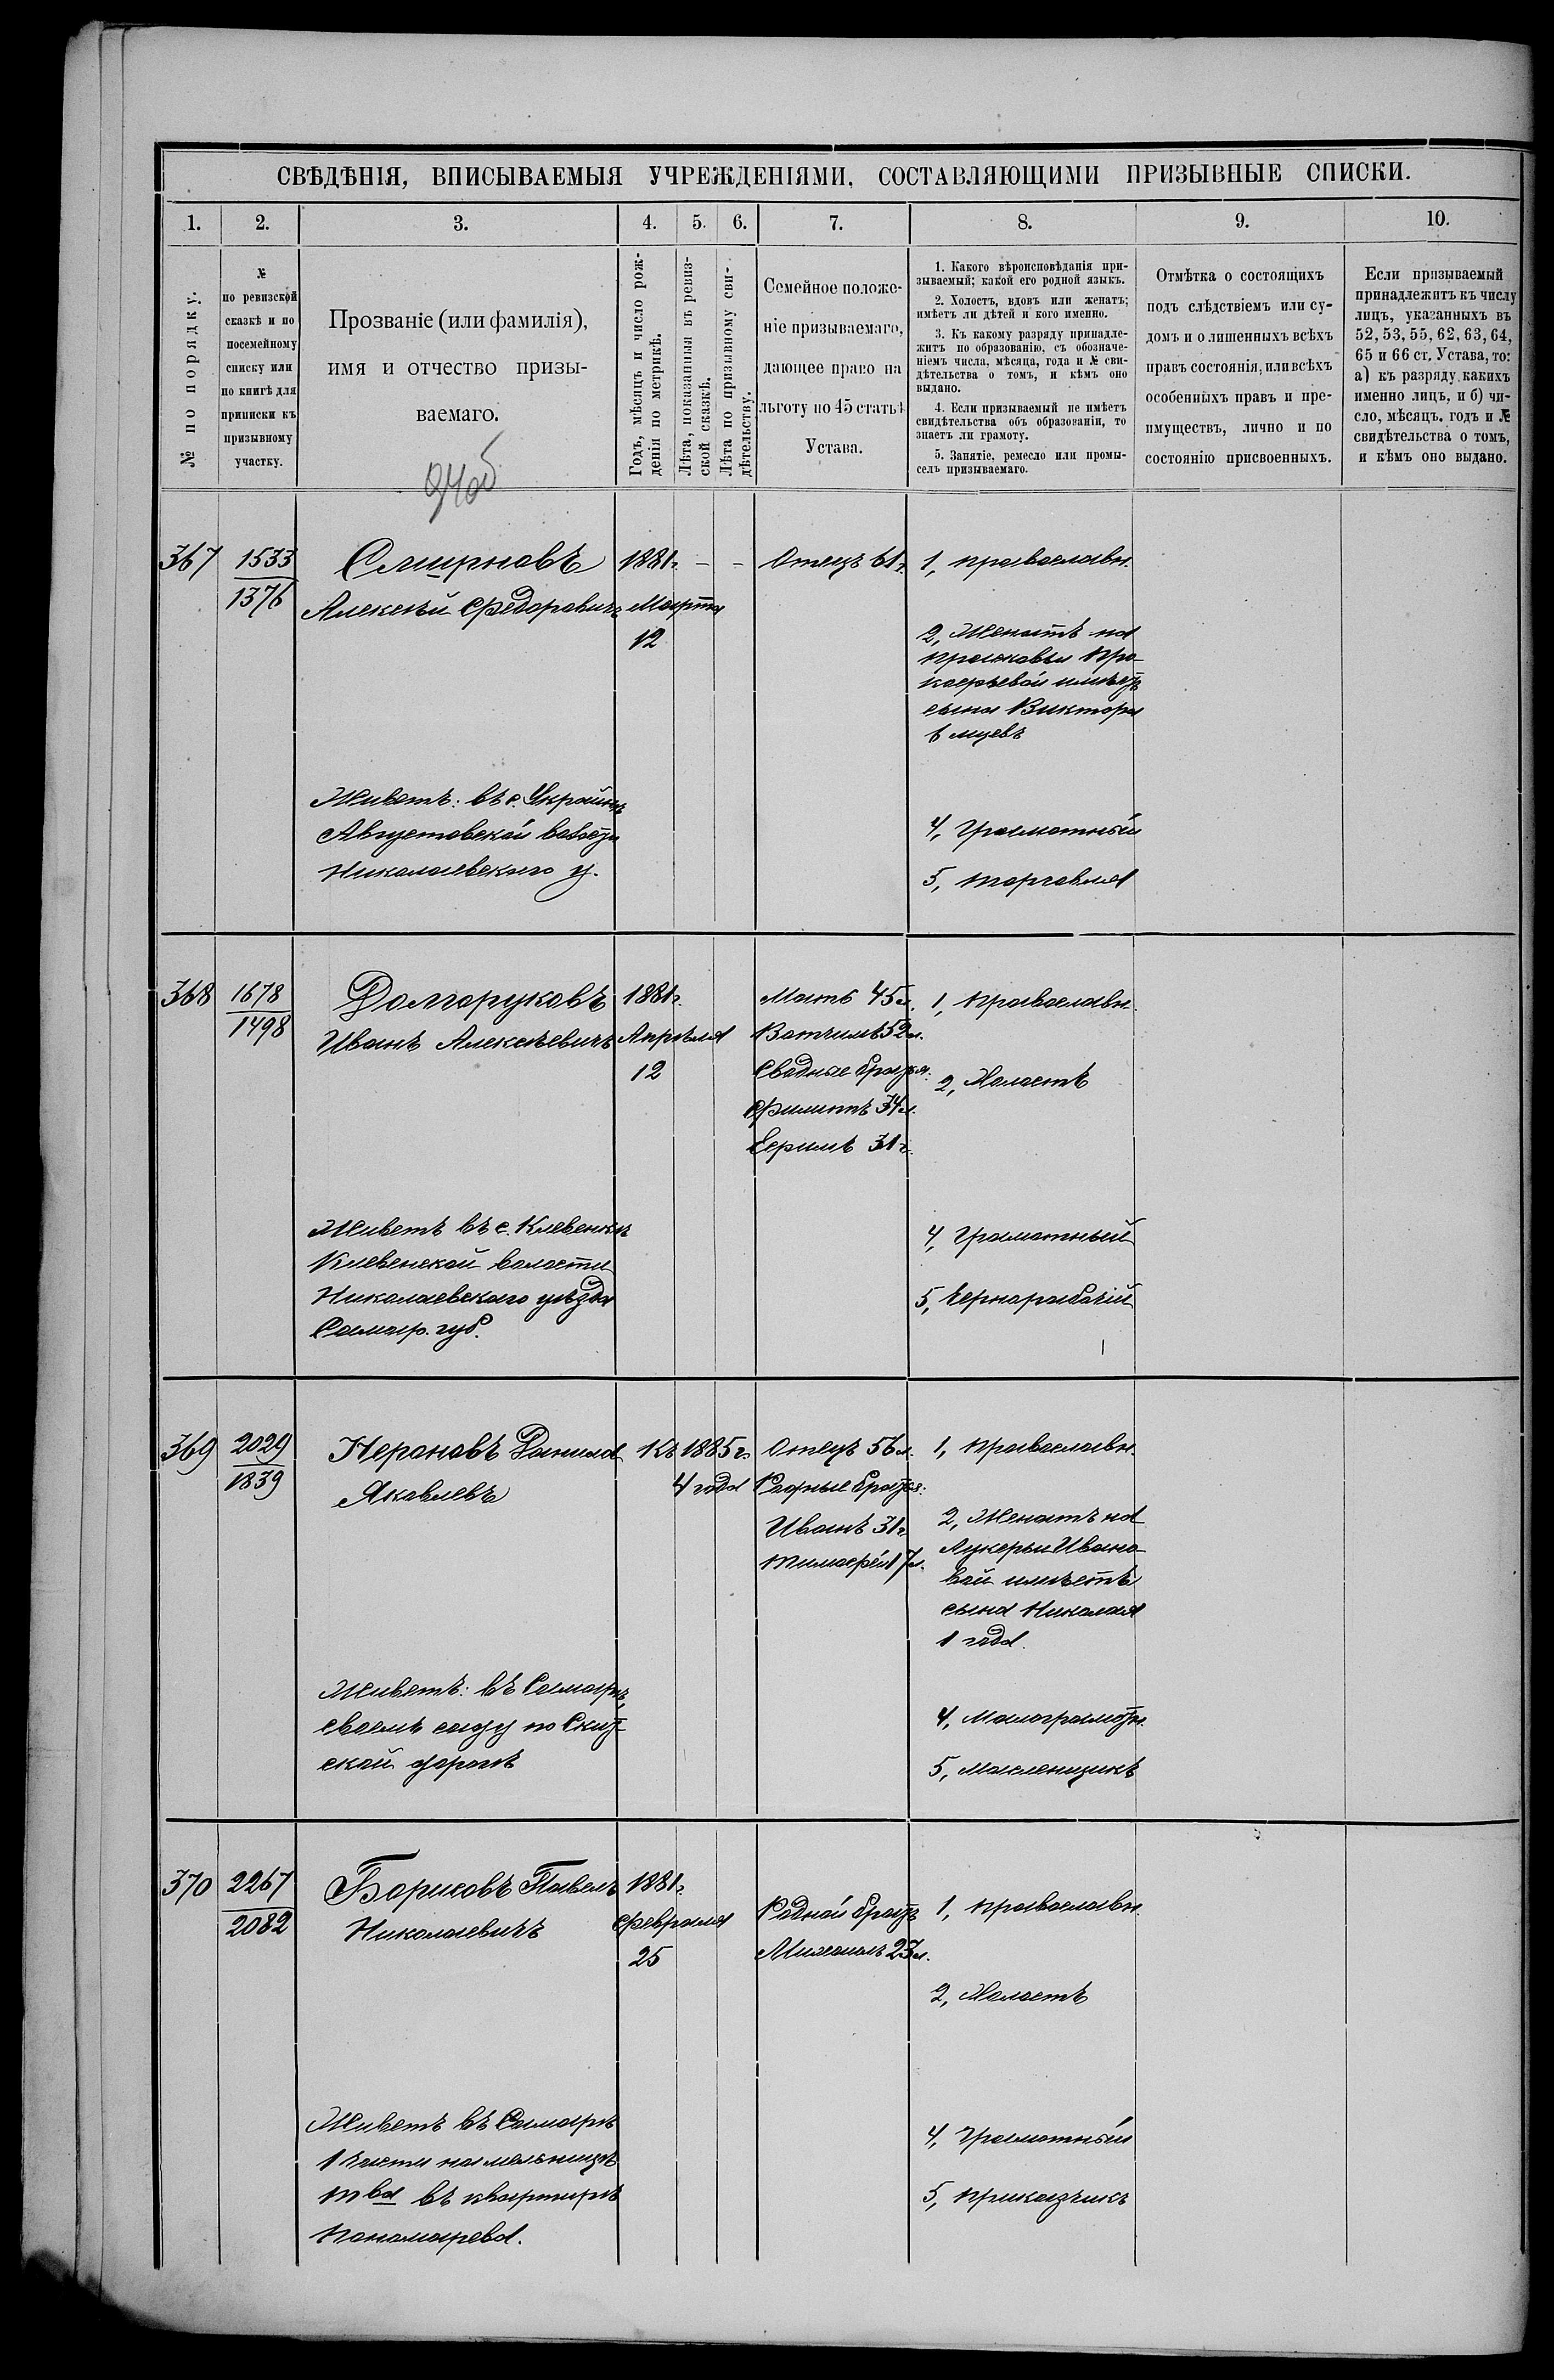 СВѢДѢНІЯ, ВПИСЫВАЕМЫЯ УЧРЕЖДЕНІЯМИ, СОСТАВЛЯЮЩИМИ ПРИЗЫВНЫЕ СПИСКИ.
1. 2. 3. 4. 5. 6. 7. 8. 9. 10.
№ по порядку.
№
по ревизской
сказкѣ и по
посемейному
списку или
по книгѣ для
приписки къ
призывному
участку.
Прозваніе (или фамилія),
имя и отчество призы-
ваемаго.
Годъ, мѣсяцъ и число рож-
денія по метрикѣ.
Лѣта, показанныя въ ревиз-
ской сказкѣ.
Лѣта по призывному сви-
дѣтельству.
Семейное положе-
ніе призываемаго,
дающее право на
льготу по 45 статьѣ
Устава.
1. Какого вѣроисповѣданія при-
зываемый; какой его родной языкъ.
2. Холостъ, вдовъ или женатъ;
имѣетъ ли дѣтей и кого именно.
3. Къ какому разряду принадле-
житъ по образованію, съ обозначе-
ніемъ числа, мѣсяца, года и № сви-
дѣтельства о томъ, и кѣмъ оно
выдано.
4. Если призываемый не имѣетъ
свидѣтельства объ образованіи, то
знаетъ ли грамоту.
5. Занятіе, ремесло или промы-
селъ призываемаго.
Отмѣтка о состоящихъ
подъ слѣдствіемъ или су-
домъ и о лишенныхъ всѣхъ
правъ состоянія, или всѣхъ
особенныхъ правъ и пре-
имуществъ, лично и по
состоянію присвоенныхъ.
Если призываемый
принадлежитъ къ числу
лицъ, указанныхъ въ
52, 53, 55, 62, 63, 64,
65 и 66 ст. Устава, то:
а) къ разряду какихъ
именно лицъ, и б) чи-
сло, мѣсяцъ, годъ и №
свидѣтельства о томъ,
и кѣмъ оно выдано.
367
1533
1376
Смирновъ
Алексѣй Ѳедоровичъ
1881 г. - -
Марта
12
Отецъ 61 г.
1, православн.
2, Женатъ на
Прасковьи Про-
кофьевой имѣетъ
сына Виктора
6 мцевъ
Живетъ: въ с. Украинкѣ
Августовской волости
Николаевскаго у.
4, Грамотный
5, торговля
368
1678
1498
Долгоруковъ
Иванъ Алексѣевичъ
1881 г.
Апрѣля
12
Мать 45 л.
Вотчимъ 52 л.
Сводные братья:
Филиппъ 34 л.
1, Православн.
2, Холостъ
Живетъ въ с. Клевенкѣ
Клевенской волости
Николаевскаго уѣзда
Самар. губ.
4, Грамотный
5, Чернорабочій
369
2029
1839
Нероновъ Данила
Яковлевъ
Къ 1885 г.
4 года
Отецъ 56 л.
Родные братья:
Иванъ 31 г.
Тимофей 17 л.
1, Православн.
2, Женатъ на
Лукерьи Ивано-
вой имѣетъ
сына Николая
1 года.
Живетъ: въ Самарѣ,
своемъ саду по Скит-
ской дорогѣ
4, Малограмотн.
5, Масленщикъ
370
2267
2082
Борисовъ Павелъ
Николаевичъ
1881 г.
Февраля
25
Родной братъ
Михаилъ 23 л.
1, Православн.
2, Холостъ
Живетъ въ Самарѣ
1 части на мельницѣ
Т ва въ квартирѣ
Пономарева.
4, Грамотный
5, Приказчикъ